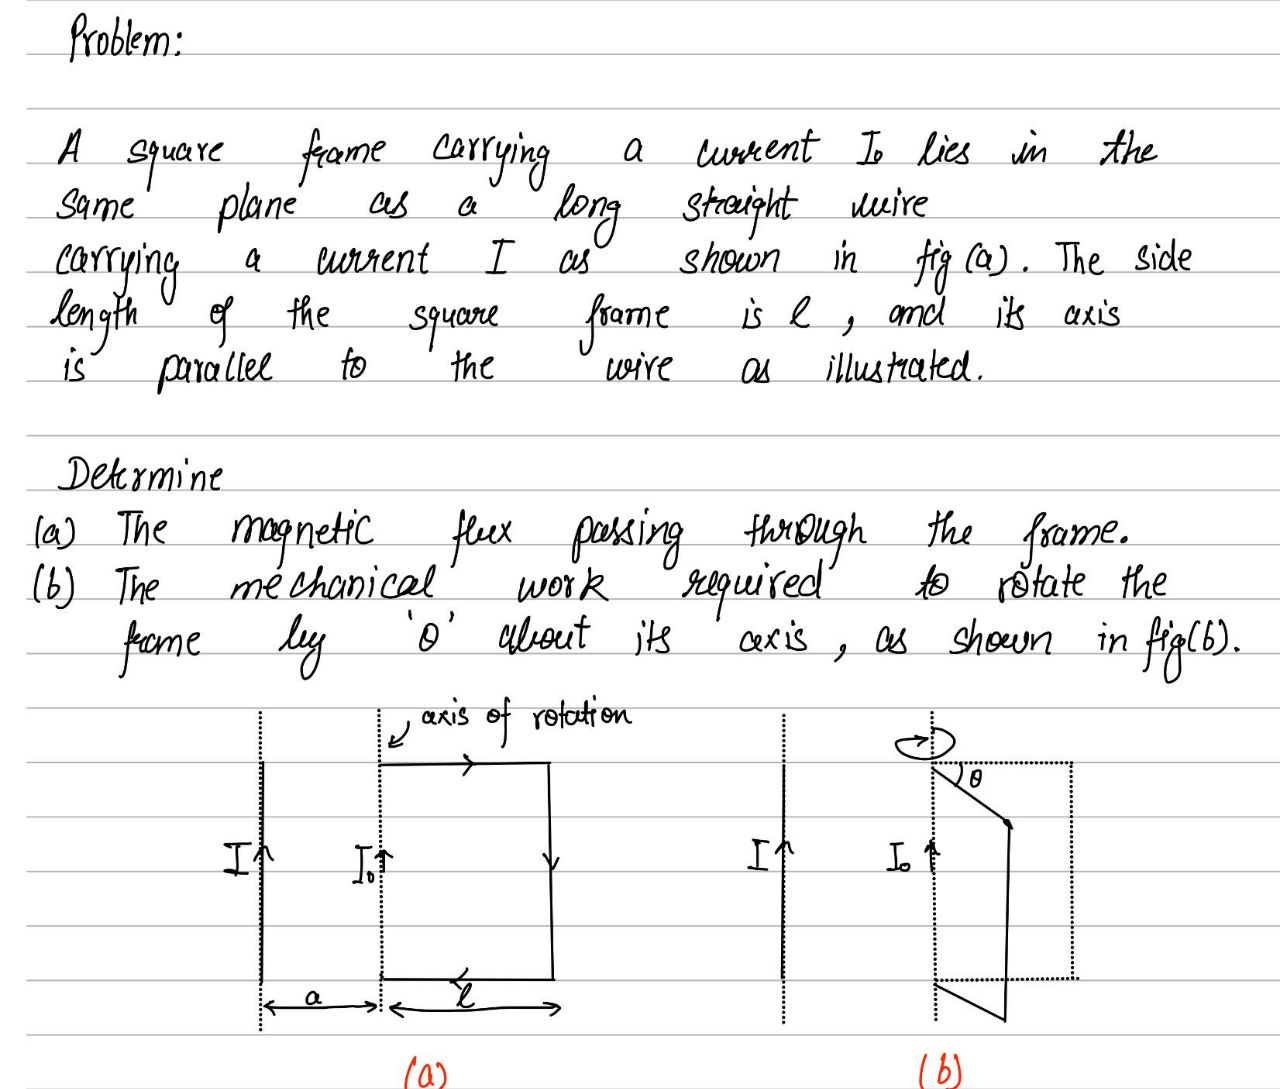 Problem:
A square frame carrying a current I₀ lies in the
same plane as a long straight wire
carrying a current I as shown in fig (a). The side
length of the square frame is l, and its axis
is parallel to the wire as illustrated.
Determine
(a) The magnetic flux passing through the frame.
(b) The mechanical work required to rotate the
frame by 'θ' about its axis, as shown in fig(b).
axis of rotation
θ
I I₀ I I₀
a l
(a) (b)